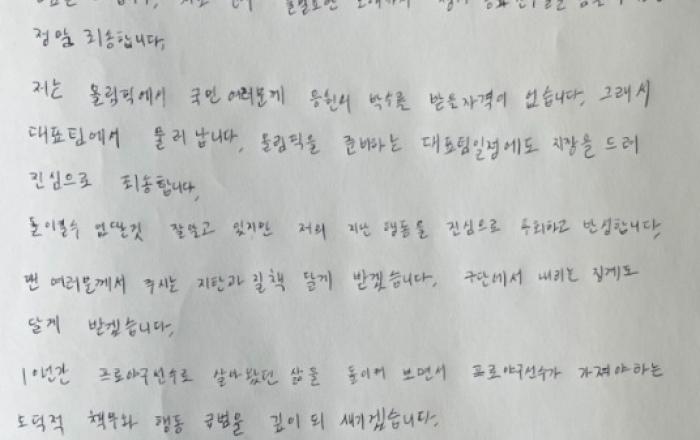 정말 죄송합니다.
저는 올림픽에서 국민 여러분께 응원의 박수를 받을 자격이 없습니다. 그래서
대표팀에서 물러납니다. 올림픽을 준비하는 대표팀일정에도 지장을 드려
진심으로 죄송합니다.
돌이킬수 없단것 잘알고 있지만 저의 지난 행동을 진심으로 후회하고 반성합니다.
팬 여러분께서 주시는 지탄과 질책 달게 받겠습니다. 구단에서 내리는 징계도
달게 받겠습니다.
10년간 프로야구선수로 살아왔던 삶을 돌이켜 보면서 프로야구선수가 가져야하는
도덕적 책무와 행동 규범을 깊이 되 새기겠습니다.